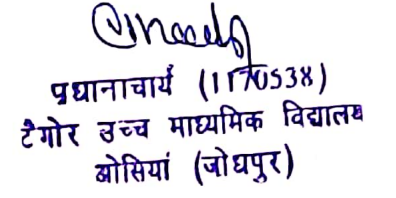 प्रधानाचार्य (1170538)
टैगोर उच्च माध्यमिक विद्यालय
ओसियां (जोधपुर)